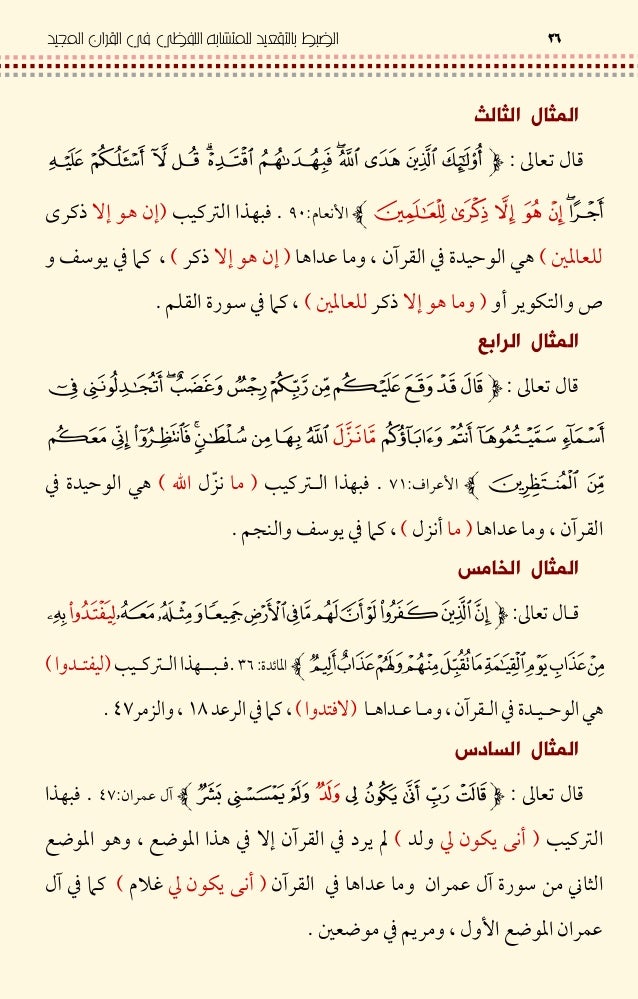 ٣٦ الضبط بالتقعيد للمتشابه اللفظي في القرآن المجيد
المثال الثالث
قال تعالى : ﴿ أُوْلَٰٓئِكَ ٱلَّذِينَ هَدَى ٱللَّهُۖ فَبِهُدَىٰهُمُ ٱقۡتَدِهۡۗ قُل لَّآ أَسۡـَٔلُكُمۡ عَلَيۡهِ
أَجۡرًاۖ إِنۡ هُوَ إِلَّا ذِكۡرَىٰ لِلۡعَٰلَمِينَ ﴾ الأنعام:٩٠ . فبهذا التركيب (إن هو إلا ذكرى
للعالمين ) هي الوحيدة في القرآن ، وما عداها ( إن هو إلا ذكر ) ، كما في يوسف و
ص والتكوير أو ( وما هو إلا ذكر للعالمين ) ، كما في سورة القلم .
المثال الرابع
قال تعالى : ﴿ قَالَ قَدۡ وَقَعَ عَلَيۡكُم مِّن رَّبِّكُمۡ رِجۡسٌ وَغَضَبٌۖ أَتُجَٰدِلُونَنِي فِيٓ
أَسۡمَآءٖ سَمَّيۡتُمُوهَآ أَنتُمۡ وَءَابَآؤُكُم مَّا نَزَّلَ ٱللَّهُ بِهَا مِن سُلۡطَٰنٖۚ فَٱنتَظِرُوٓاْ إِنِّي مَعَكُم
مِّنَ ٱلۡمُنتَظِرِينَ ﴾ الأعراف:٧١ . فبهذا التركيب ( ما نزّل الله ) هي الوحيدة في
القرآن ، وما عداها ( ما أنزل ) ، كما في يوسف والنجم .
المثال الخامس
قال تعالى: ﴿ إِنَّ ٱلَّذِينَ كَفَرُواْ لَوۡ أَنَّ لَهُم مَّا فِي ٱلۡأَرۡضِ جَمِيعٗا وَمِثۡلَهُۥ مَعَهُۥ لِيَفۡتَدُواْ بِهِۦ
مِنۡ عَذَابِ يَوۡمِ ٱلۡقِيَٰمَةِ مَا تُقُبِّلَ مِنۡهُمۡۖ وَلَهُمۡ عَذَابٌ أَلِيمٌ ﴾ المائدة: ٣٦ . فبهذا التركيب (ليفتدوا )
هي الوحيدة في القرآن ، وما عداها (لافتدوا ) ، كما في الرعد ١٨ ، والزمر٤٧ .
المثال السادس
قال تعالى : ﴿ قَالَتۡ رَبِّ أَنَّىٰ يَكُونُ لِي وَلَدٌ وَلَمۡ يَمۡسَسۡنِي بَشَرٌ ﴾ آل عمران:٤٧ . فبهذا
التركيب ( أنى يكون لي ولد ) لم يرد في القرآن إلا في هذا الموضع ، وهو الموضع
الثاني من سورة آل عمران وما عداها في القرآن ( أنى يكون لي غلام ) كما في آل
عمران الموضع الأول ، ومريم في موضعين .